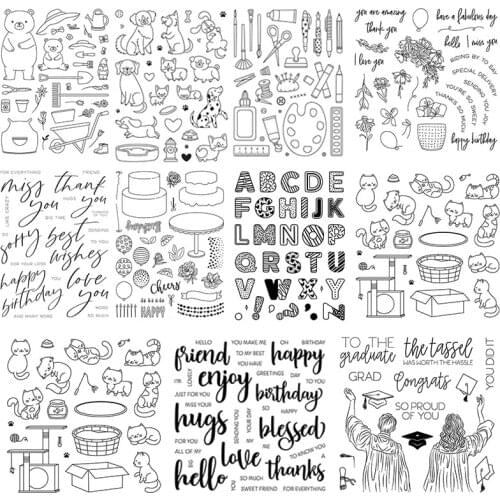 you are amazing
have a fabulous day
thank you
hello
I miss you
I love you
RIDING BY TO SAY
SPECIAL DELIVERY
YOU'RE SO SWEET
THANKS SO MUCH
happy birthday
FOR EVERYTHING
FRIEND
miss thank
you you
LIKE CRAZY
BIG TIME
SENDING
sorry best
TO YOU
you wishes
FOR YOUR LOSS
happy love
birthday you
AND MANY MORE
SO MUCH
birthday
Cheers
HAPPY
ABCDE
FGHIJK
LMNOP
QRSTU
VWXY
Z
HELLO
YOU MAKE ME
OH
BIRTHDAY
friend
TO MY BEST
happy
YOU HAVE
I'M
LOVELY
enjoy
GREETINGS
DAY
TO YOU
JUST FOR YOU
birthday
MISS YOUR
SENDING YOU
YOUR DAY
SO
HAPPY
hugs
FOR YOU
blessed
ALL OF MY
BIG
love
MY
hello
YOU
thanks
SO MUCH
SWEET FRIEND
FOR EVERYTHING
TO THE
graduate
GRAD
the tassel
WAS WORTH THE HASSLE
Congrats
YOU DID IT
SO PROUD
OF YOU